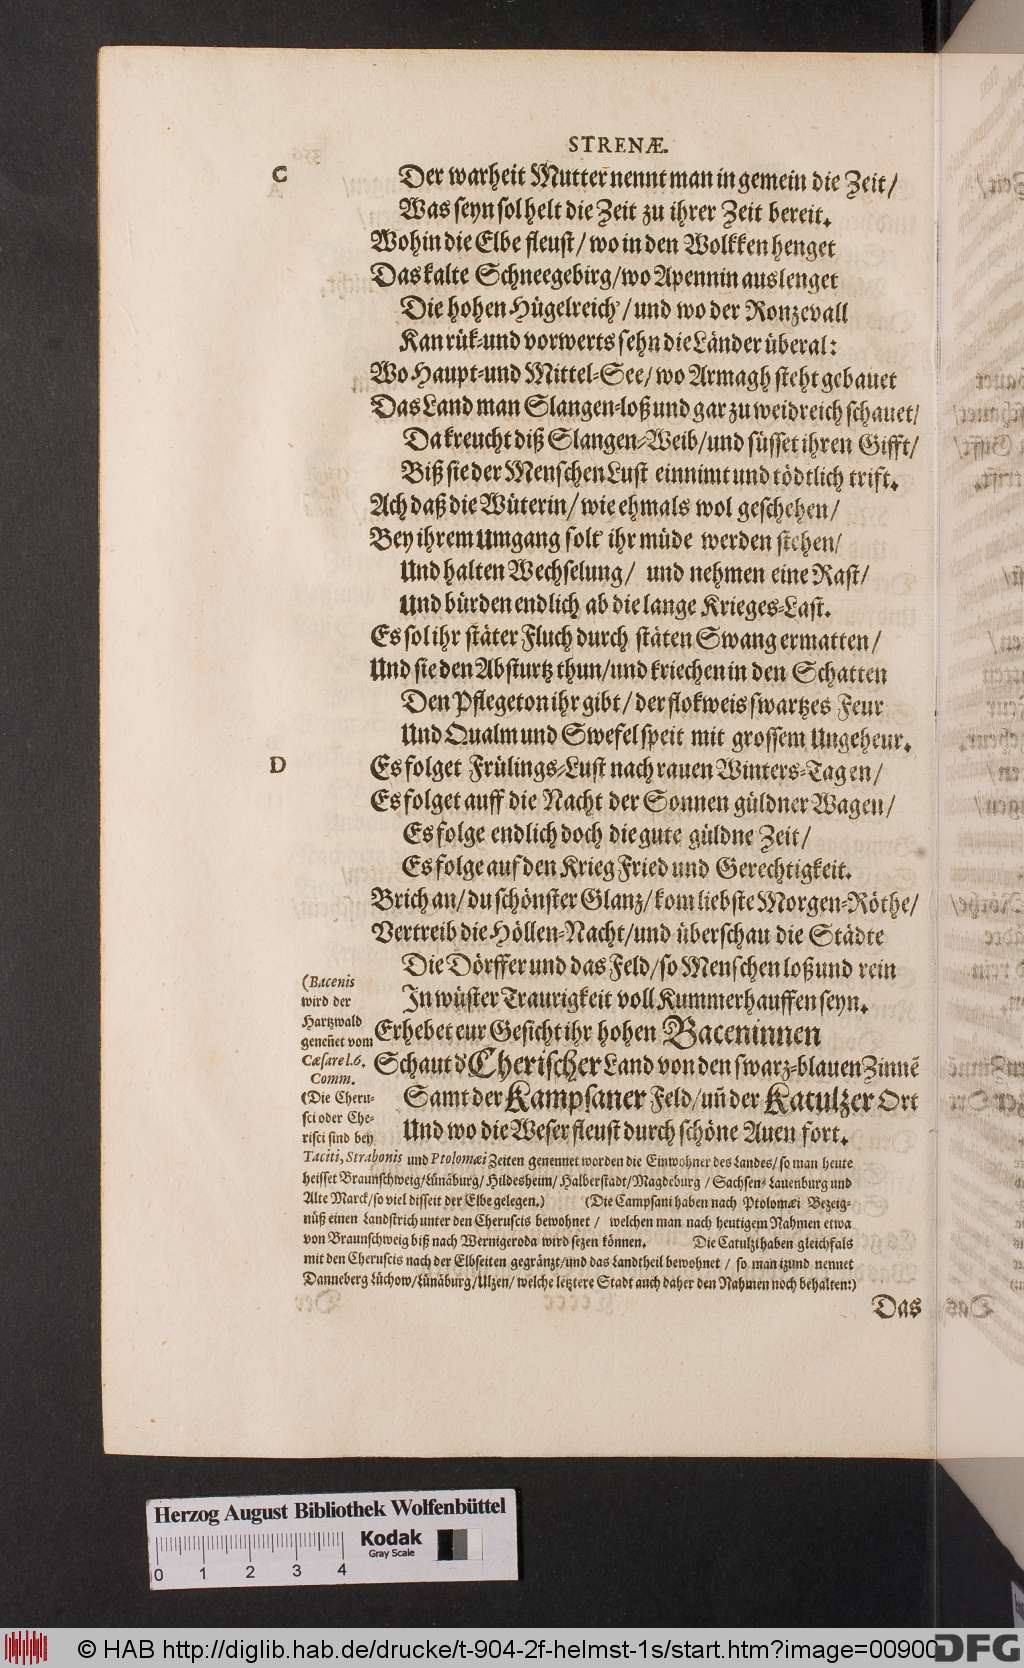 STRENÆ.
C
Der warheit Mutter nennt man in gemein die Zeit/
Was seyn sol helt die Zeit zu ihrer Zeit bereit.
Wohin die Elbe fleust/ wo in den Wolkken henget
Das kalte Schneegebirg/ wo Apennin auslenget
Die hohen Hügelreich'/ und wo der Ronzevall
Kan rük-und vorwerts sehn die Länder überal:
Wo Haupt-und Mittel-See/ wo Armagh steht gebauet
Das Land man Slangen-loß und gar zu weidreich schauet/
Da kreucht diß Slangen-Weib/ und süsset ihren Gifft/
Biß sie der Menschen Lust einnimt und tödtlich trift.
Ach daß die Wüterin/ wie ehmals wol geschehen/
Bey ihrem Umgang solt' ihr müde werden stehen/
Und halten Wechselung/ und nehmen eine Rast/
Und bürden endlich ab die lange Krieges-Last.
Es sol ihr stäter Fluch durch stäten Swang ermatten/
Und sie den Absturtz thun/ und kriechen in den Schatten
Den Pflegeton ihr gibt/ der flokweis swartzes Feur
Und Qualm und Swefel speit mit grossem Ungeheur.
D
Es folget Frülings-Lust nach rauen Winters-Tagen/
Es folget auff die Nacht der Sonnen güldner Wagen/
Es folge endlich doch die gute güldne Zeit/
Es folge auf den Krieg Fried und Gerechtigkeit.
Brich an/ du schönster Glanz/ kom liebste Morgen-Röthe/
Vertreib die Höllen-Nacht/ und überschau die Städte
Die Dörffer und das Feld/ so Menschen loß und rein
In wüster Traurigkeit voll Kummerhauffen seyn.
Erhebet eur Gesicht ihr hohen Baceninnen
Schaut d' Cherischer Land von den swarz-blauen Zinnē
Samt der Kampsaner Feld/ uñ der Katulzer Ort
Und wo die Weser fleust durch schöne Auen fort.
(Bacenis
wird der
Hartzwald
geneñet vom
Cæsare l. 6.
Comm.
(Die Cheru-
sci oder Che-
risci sind bey
Taciti, Strabonis und Ptolomæi Zeiten genennet worden die Einwohner des Landes/ so man heute
heisset Braunschweig/ Lünäburg/ Hildesheim/ Halberstadt/ Magdeburg/ Sachsen-Lauenburg und
Alte Marck/ so viel disseit der Elbe gelegen.) (Die Campsani haben nach Ptolomæi Bezeig-
nüß einen Landstrich unter den Cheruscis bewohnet/ welchen man nach heutigem Nahmen etwa
von Braunschweig biß nach Wernigeroda wird sezen können. Die Catulzi haben gleichfals
mit den Cheruscis nach der Elbseiten gegränzt/ und das Landtheil bewohnet/ so man izund nennet
Danneberg Lüchow/ Lünäburg/ Ulzen/ welche letztere Stadt auch daher den Nahmen noch behalten:)
Das
Herzog August Bibliothek Wolfenbüttel
Kodak
Gray Scale
0 1 2 3 4
© HAB http://diglib.hab.de/drucke/t-904-2f-helmst-1s/start.htm?image=00900
DFG